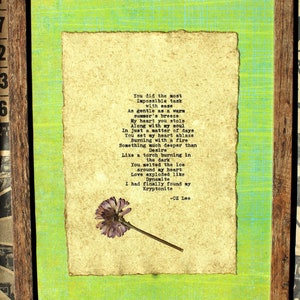 You did the most
Impossible task
with ease
As gentle as a warm
summer's breeze
My heart you stole
Along with my soul
In just a matter of days
You set my heart ablaze
Burning with a fire
Something much deeper than
Desire
Like a torch burning in
the dark
You melted the ice
around my heart
Love exploded like
Dynamite
I had finally found my
Kryptonite
-CZ Lee